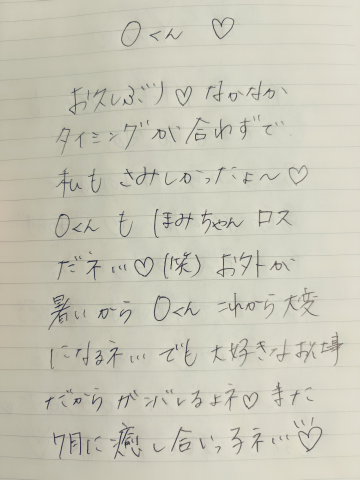 Oくん ♡
お久しぶり♡ なかなか
タイミングが合わずで
私も さみしかったよ〜♡
Oくん も ほまみちゃん ロス
だネ…♡(笑) お外が
暑いから Oくん これから大変
になるネ… でも 大好きなお仕事
だから ガンバレるよネ♡ また
7月に癒し合いっ子ネ…♡